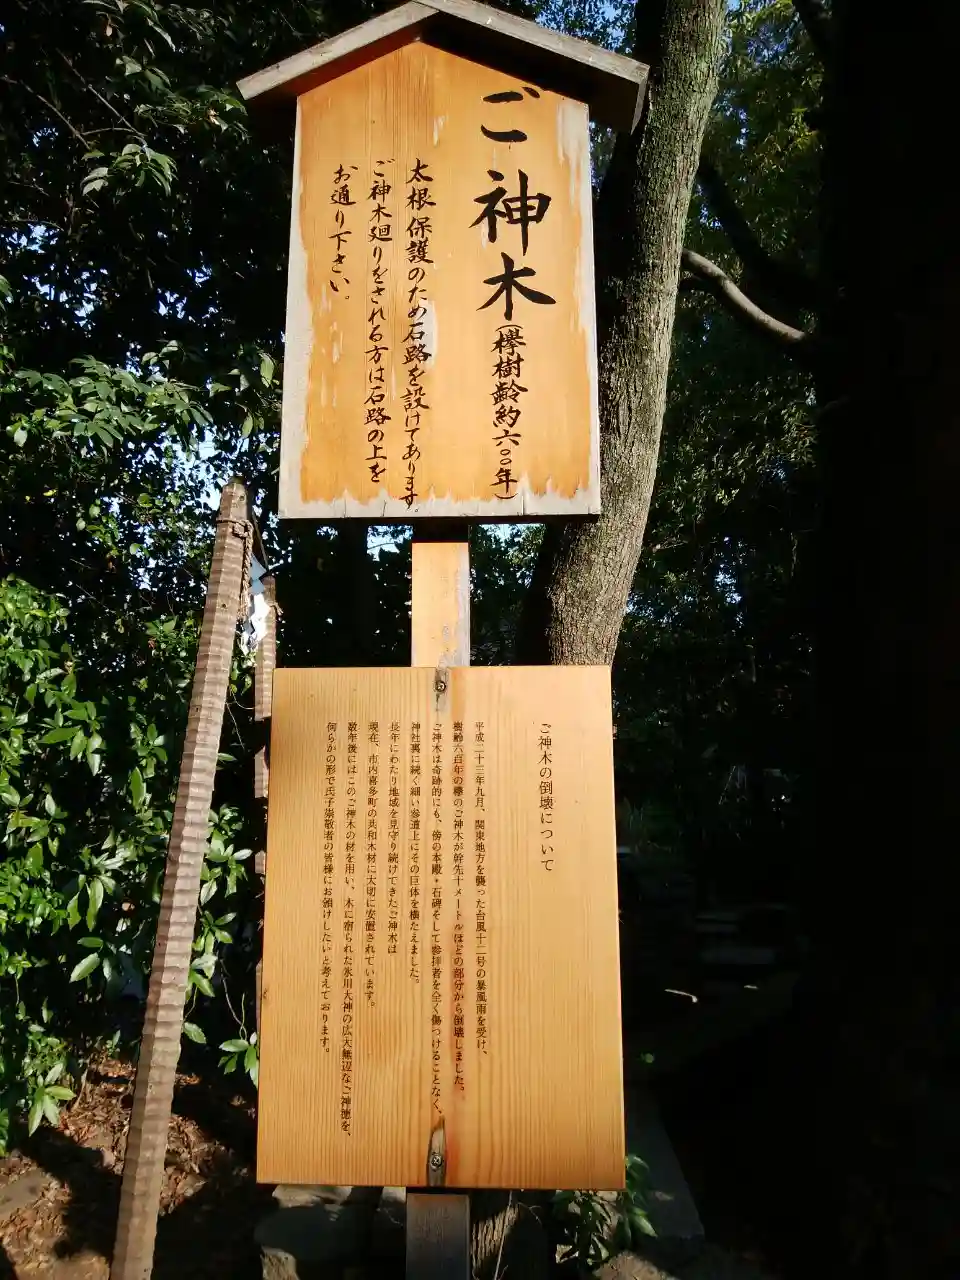 ご神木(欅樹齢約六〇〇年)
太根保護のため石路を設けてあります。
ご神木廻りをされる方は石路の上を
お通り下さい。
ご神木の倒壊について
平成二十三年九月、関東地方を襲った台風十二号の暴風雨を受け、
樹齢六百年の欅のご神木が幹先十メートルほどの部分から倒壊しました。
ご神木は奇跡的にも、傍の本殿・石碑そして参拝者を全く傷つけることなく、
神社裏に続く細い参道上にその巨体を横たえました。
長年にわたり地域を見守り続けてきたご神木は
現在、市内喜多町の共和木材に大切に安置されています。
数年後にはこのご神木の材を用い、木に宿られた氷川大神の広大無辺なご神徳を、
何らかの形で氏子崇敬者の皆様にお頒けしたいと考えております。